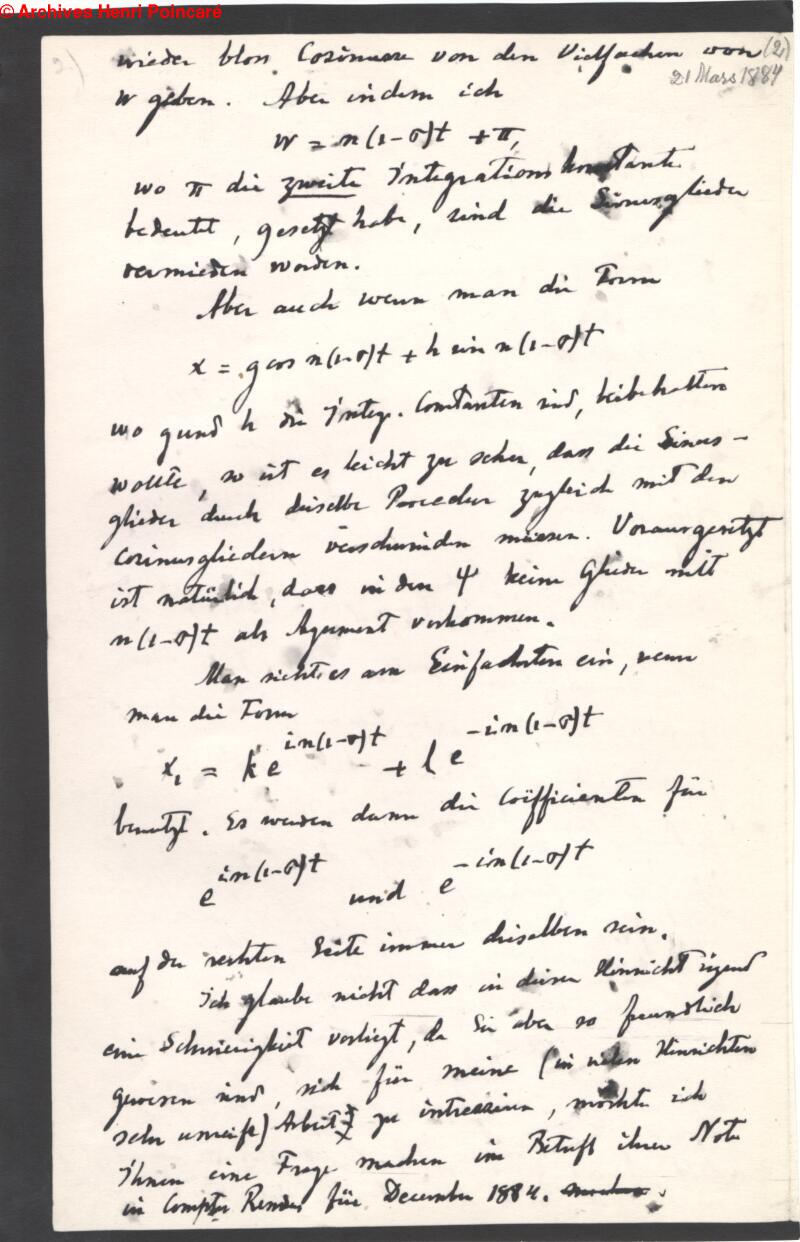 © Archives Henri Poincaré
wieder bloss Cosinusse von den Vielfachen von (2)
21 Mars 1884
w geben. Aber indem ich
w = n(1-σ)t + π,
wo π die zweite Integrationskonstante
bedeutet, gesetzt habe, sind die Sinusglieder
vermieden worden.
Aber auch wenn man die Form
x = g cos n(1-σ)t + h sin n(1-σ)t
wo g und h die Integ. Constanten sind, beibehalten
wollte, so ist es leicht zu sehen, dass die Sinus-
glieder durch dieselbe Procedur zugleich mit den
Cosinusgliedern verschwinden müssen. Vorausgesetzt
ist natürlich, dass in den ψ keine Glieder mit
n(1-σ)t als Agument vorkommen.
Man sieht es am Einfachsten ein, wenn
man die Form
x₁ = k e^{in(1-σ)t} + l e^{-in(1-σ)t}
benutzt. Es werden dann die Coëfficienten für
e^{in(1-σ)t} und e^{-in(1-σ)t}
auf der rechten Seite immer dieselben sein.
Ich glaube nicht dass in dieser Hinsicht irgend
eine Schwierigkeit vorliegt, da Sie aber so freundlich
gewesen sind, sich für meine (in vielen Hinsichten
sehr unreife) Arbeit zu intressiren, möchte ich
Ihnen eine Frage machen im Betreff ihrer Note
in Comptes Rendus für December 1884.